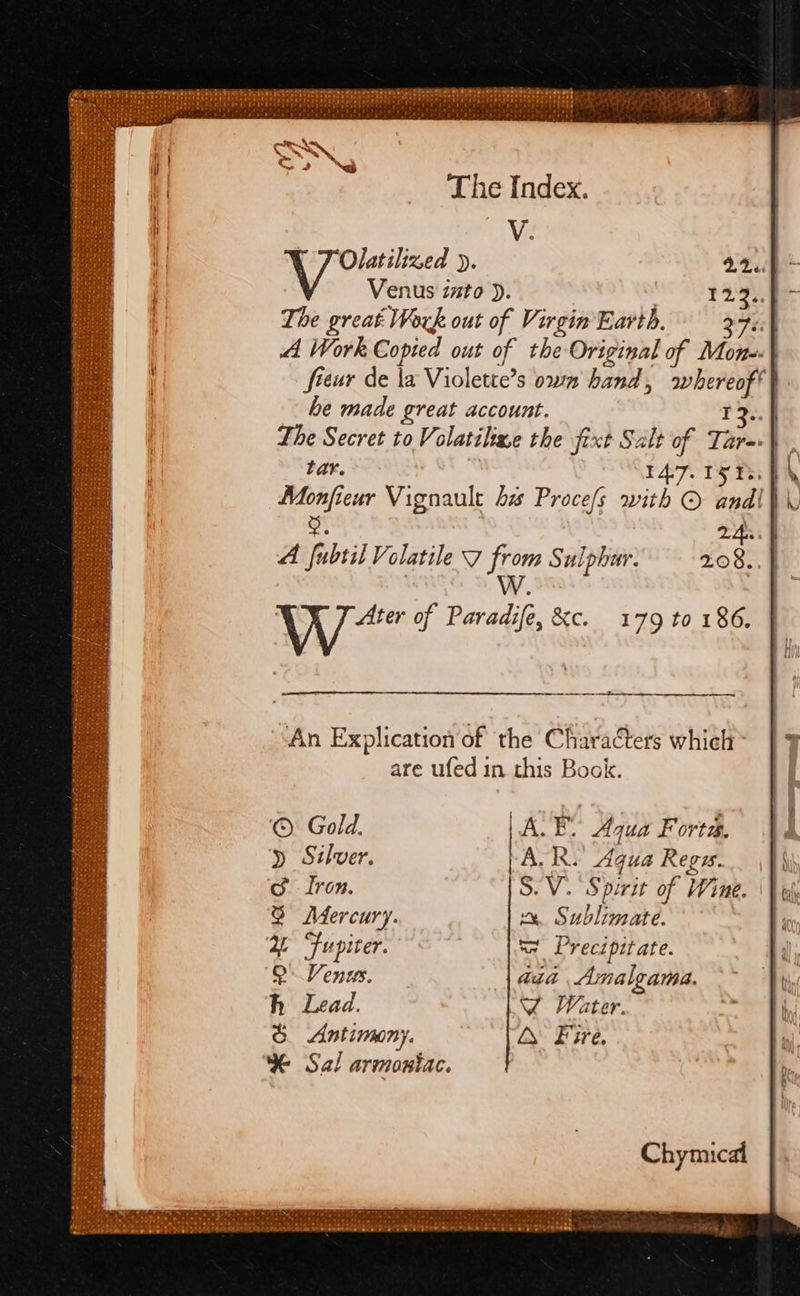 The Index.
V.
VOlatilized ☽. 22.
Venus into ☽. 123.
The great Work out of Virgin Earth. 37.
A Work Copied out of the Original of Mon-
ſieur de la Violette's own hand, whereof
he made great account. 13.
The Secret to Volatilize the fixt Salt of Tar-
tar. 147. 151.
Monſieur Vignault his Proceſs with ☉ and
☿. 24.
A ſubtil Volatile 🜄 from Sulphur. 208.
W.
WAter of Paradiſe, &c. 179 to 186.
An Explication of the Characters which
are uſed in this Book.
☉ Gold.
☽ Silver.
♂ Iron.
☿ Mercury.
♃ Jupiter.
♀ Venus.
♄ Lead.
♁ Antimony.
✶ Sal armoniac.
A.F. Aqua Fortis.
A.R. Aqua Regis.
S.V. Spirit of Wine.
Sublimate.
Precipitate.
aaa Amalgama.
🜄 Water.
🜂 Fire.
Chymical